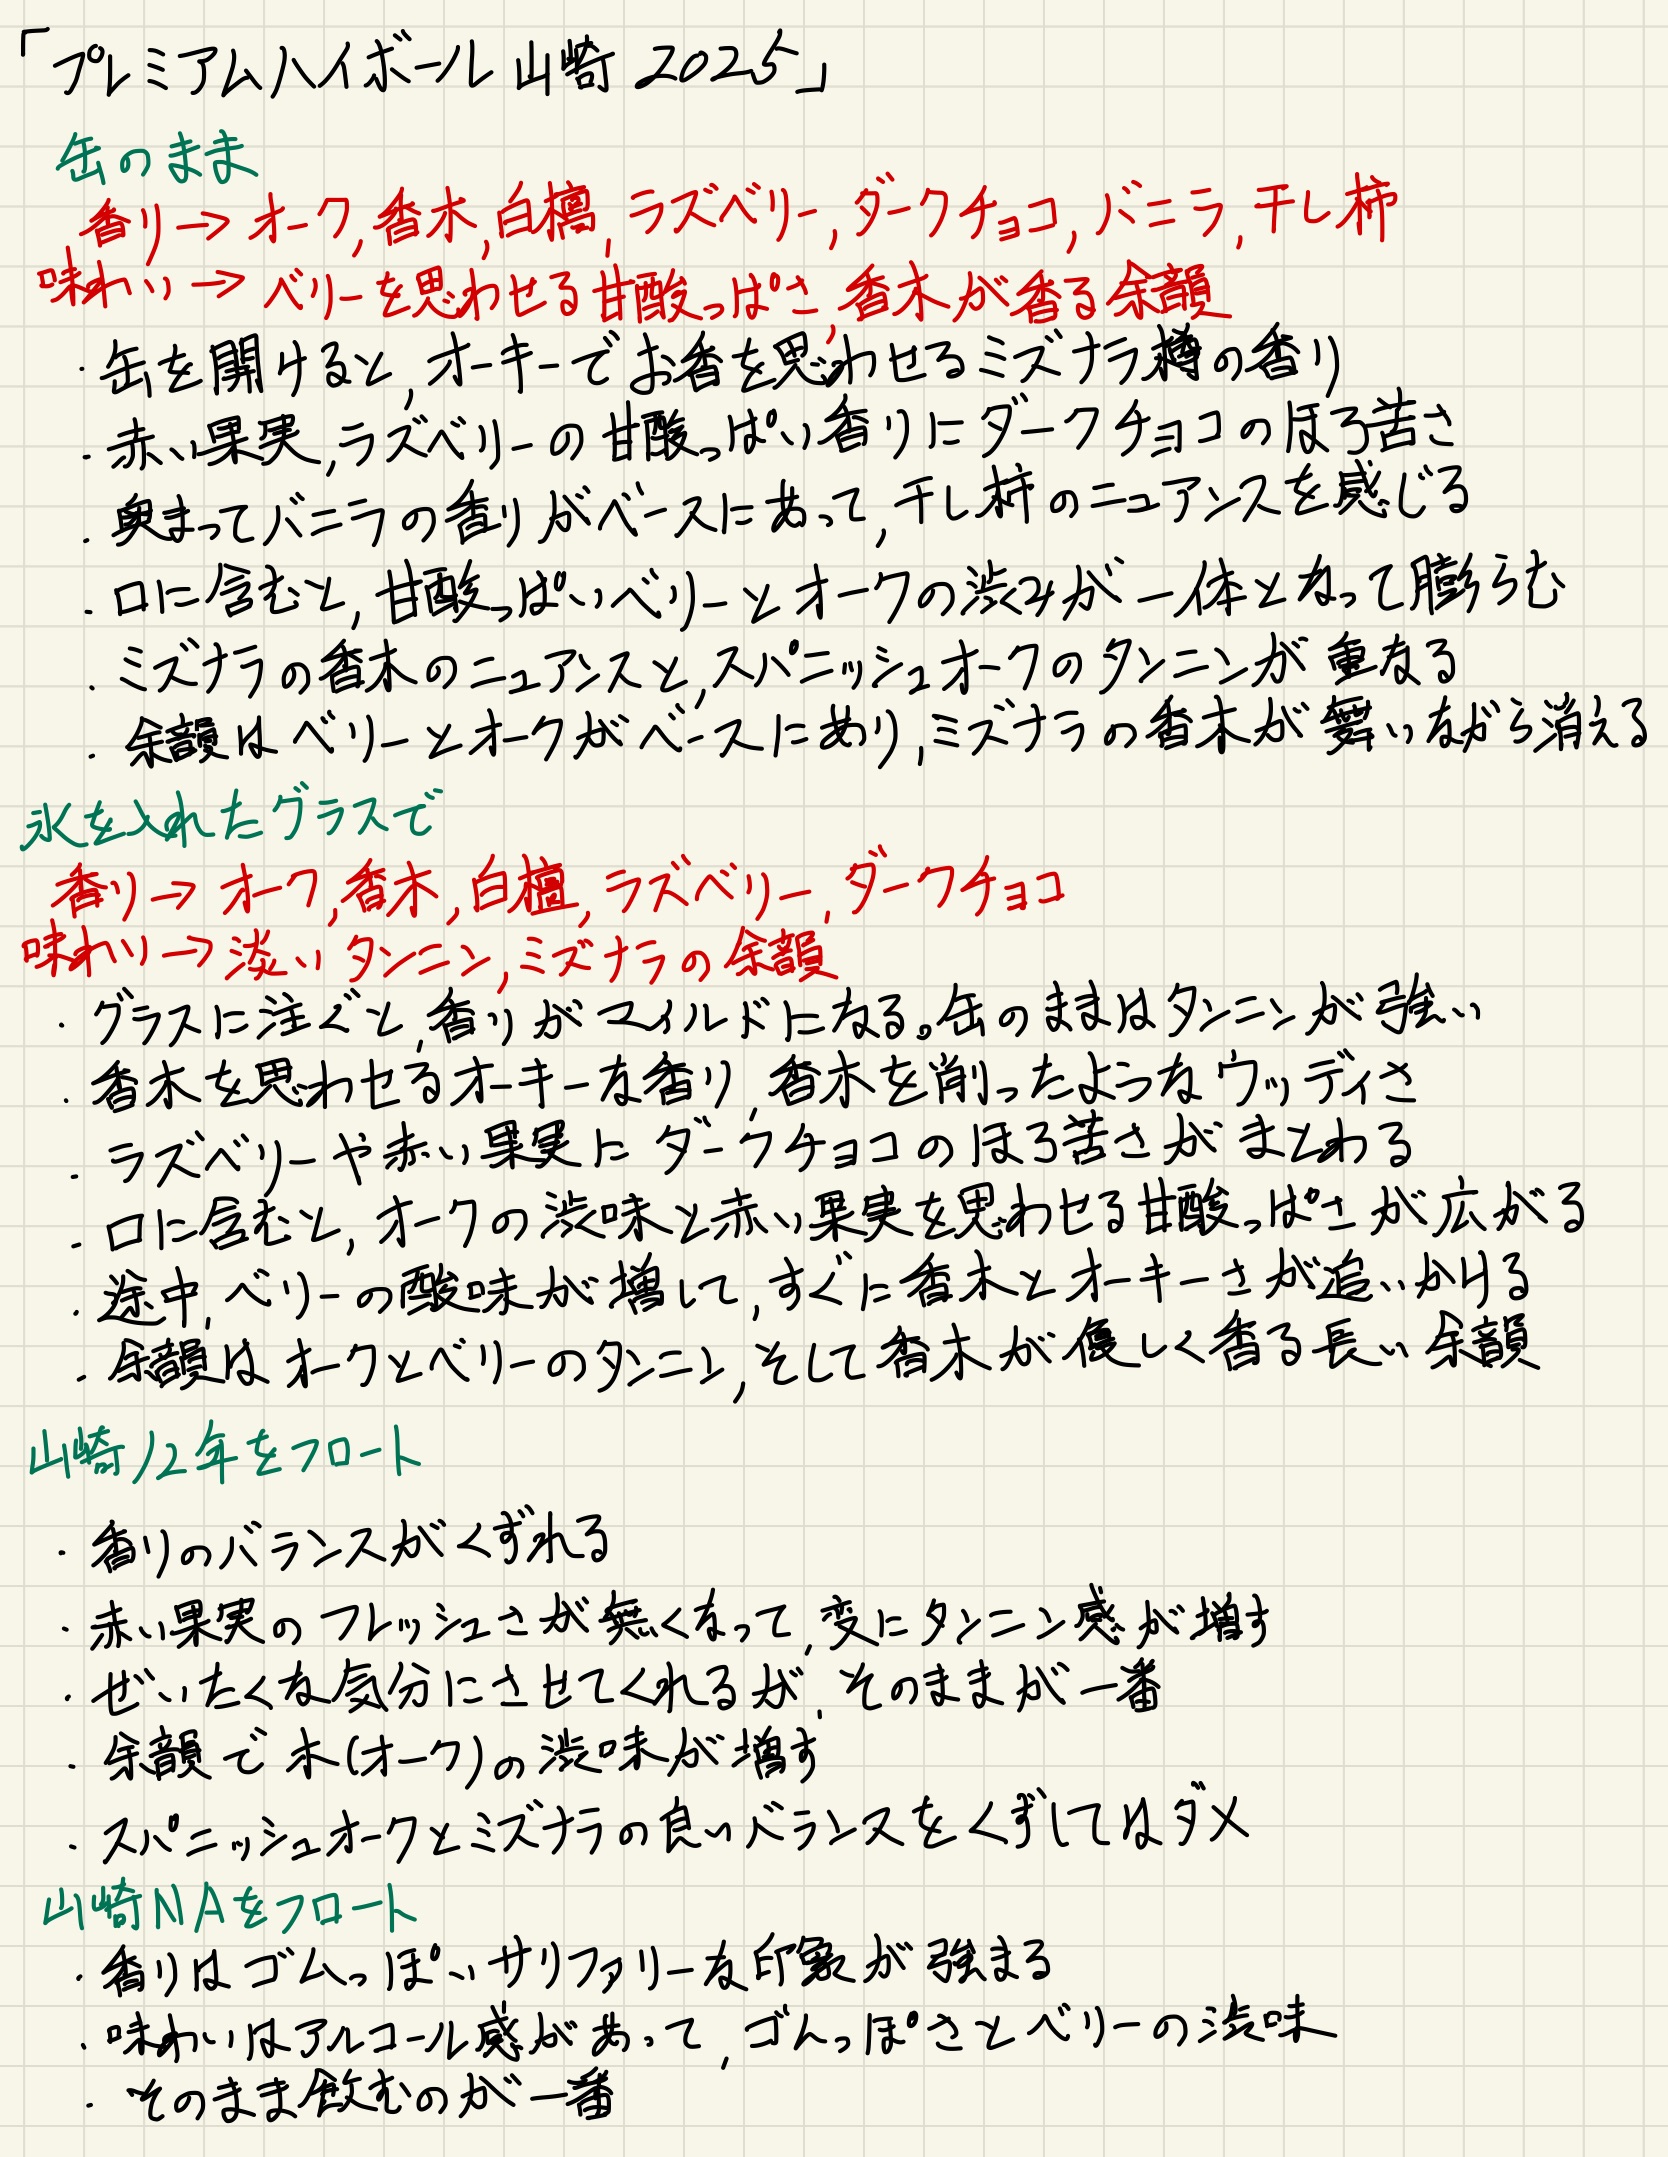 「プレミアムハイボール山崎2025」
缶のまま
香り→オーク,香木,白檀,ラズベリー,ダークチョコ,バニラ,干し柿
味わい→ベリーを思わせる甘酸っぱさ,香木が香る余韻
・缶を開けると,オーキーでお香を思わせるミズナラ樽の香り
・赤い果実,ラズベリーの甘酸っぱい香りにダークチョコのほろ苦さ
・奥まってバニラの香りがベースにあって,干し柿のニュアンスを感じる
・口に含むと,甘酸っぱいベリーとオークの渋みが一体となって膨らむ
・ミズナラの香木のニュアンスと,スパニッシュオークのタンニンが重なる
・余韻はベリーとオークがベースにあり,ミズナラの香木が舞いながら消える
氷を入れたグラスで
香り→オーク,香木,白檀,ラズベリー,ダークチョコ
味わい→淡いタンニン,ミズナラの余韻
・グラスに注ぐと,香りがマイルドになる。缶のままはタンニンが強い
・香木を思わせるオーキーな香り,香木を削ったようなウッディさ
・ラズベリーや赤い果実にダークチョコのほろ苦さがまとわる
・口に含むと,オークの渋味と赤い果実を思わせる甘酸っぱさが広がる
・途中,ベリーの酸味が増して,すぐに香木とオーキーさが追いかける
・余韻はオークとベリーのタンニン,そして香木が優しく香る長い余韻
山崎12年をフロート
・香りのバランスがくずれる
・赤い果実のフレッシュさが無くなって,変にタンニン感が増す
・ぜいたくな気分にさせてくれるが,そのままが一番
・余韻で木(オーク)の渋味が増す
・スパニッシュオークとミズナラの良いバランスをくずしてはダメ
山崎NAをフロート
・香りはゴムっぽいサリファリーな印象が強まる
・味わいはアルコール感があって,ゴムっぽさとベリーの渋味
・そのまま飲むのが一番